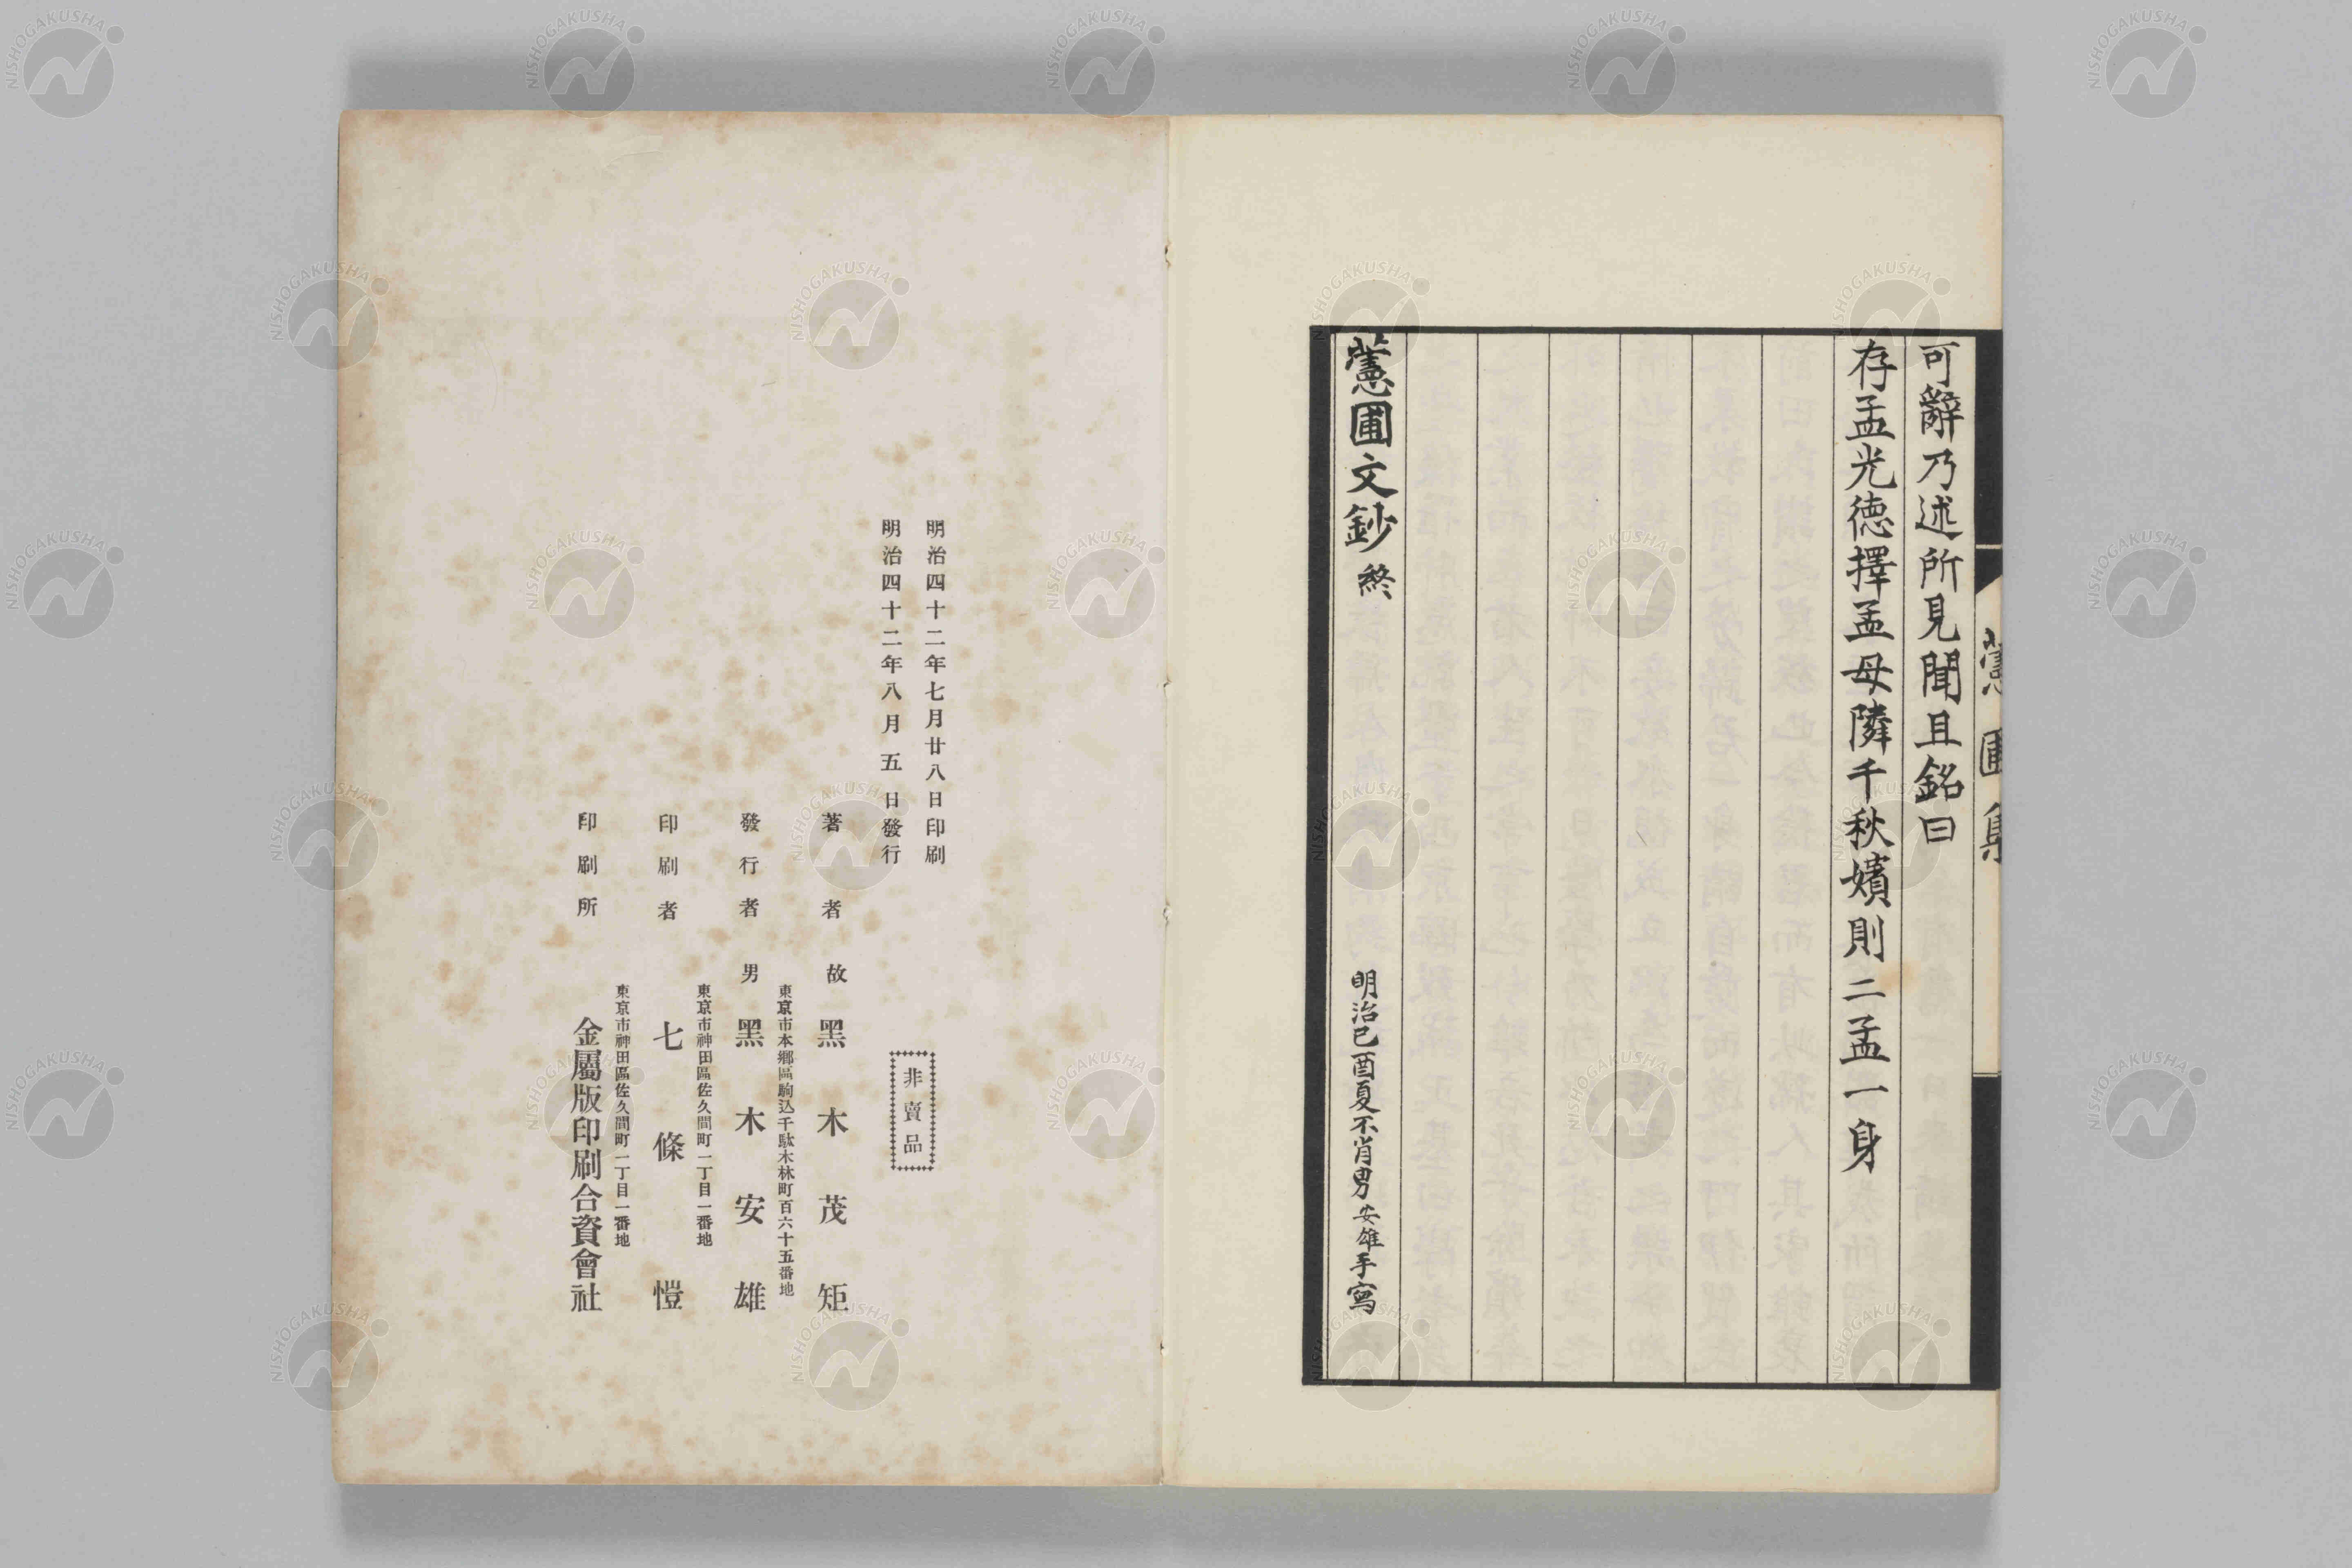 可辭乃述所見聞且銘曰
存孟光德擇孟母隣千秋嬪則二孟一身
藼圃文鈔 終
明治己酉夏不肖男安雄手寫
明治四十二年七月廿八日印刷
明治四十二年八月五日發行
非賣品
著者 故 黑木茂矩
東京市本鄉區駒込千駄木林町百六十五番地
發行者 男 黑木安雄
東京市神田區佐久間町一丁目一番地
印刷者 七條愷
東京市神田區佐久間町一丁目一番地
印刷所 金屬版印刷合資會社
NISHOGAKUSHA